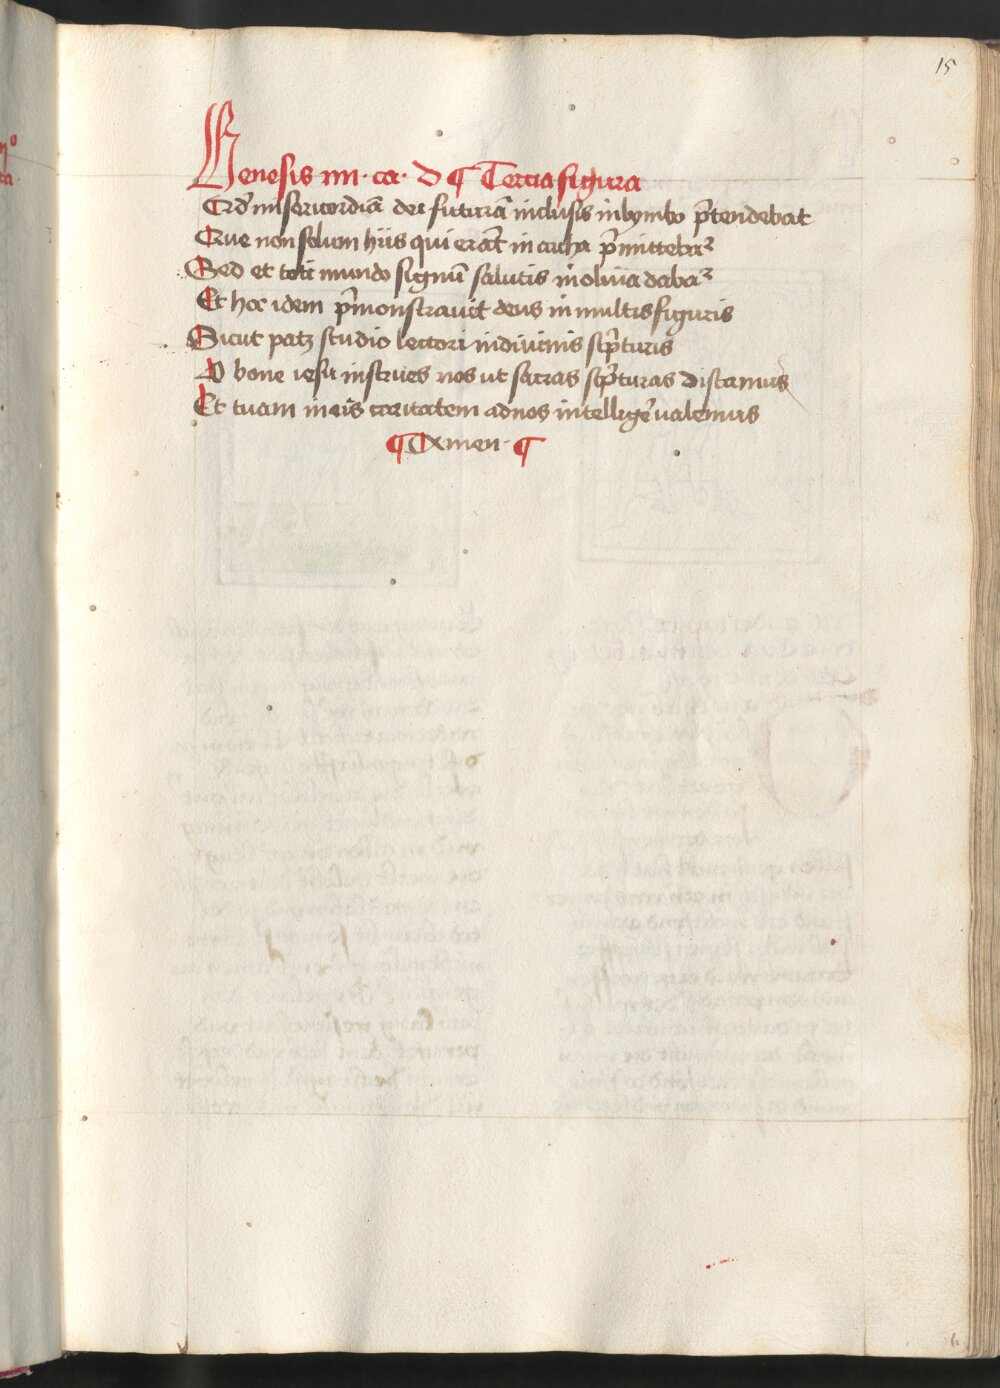 15
Genesis iiii · ca · D ¶ Tercia figura
Qd' misericordiā dei futurā inclusis in lymbo p̄tendebat
Que non solum hiis qui erāt in archa p̄mittebat᷑
Sed et toti mundo signū salutis in oliua dabat᷑
Et hoc idem p̄monstrauit deus in multis figuris
Sicut patꝫ studio lectori in diuinis sc̄pturis
O bone iesu instrues nos ut sacras sc̄pturas discamus
Et tuam in eis caritatem ad nos intellige᷑ ualeamus
¶ Amen · ¶